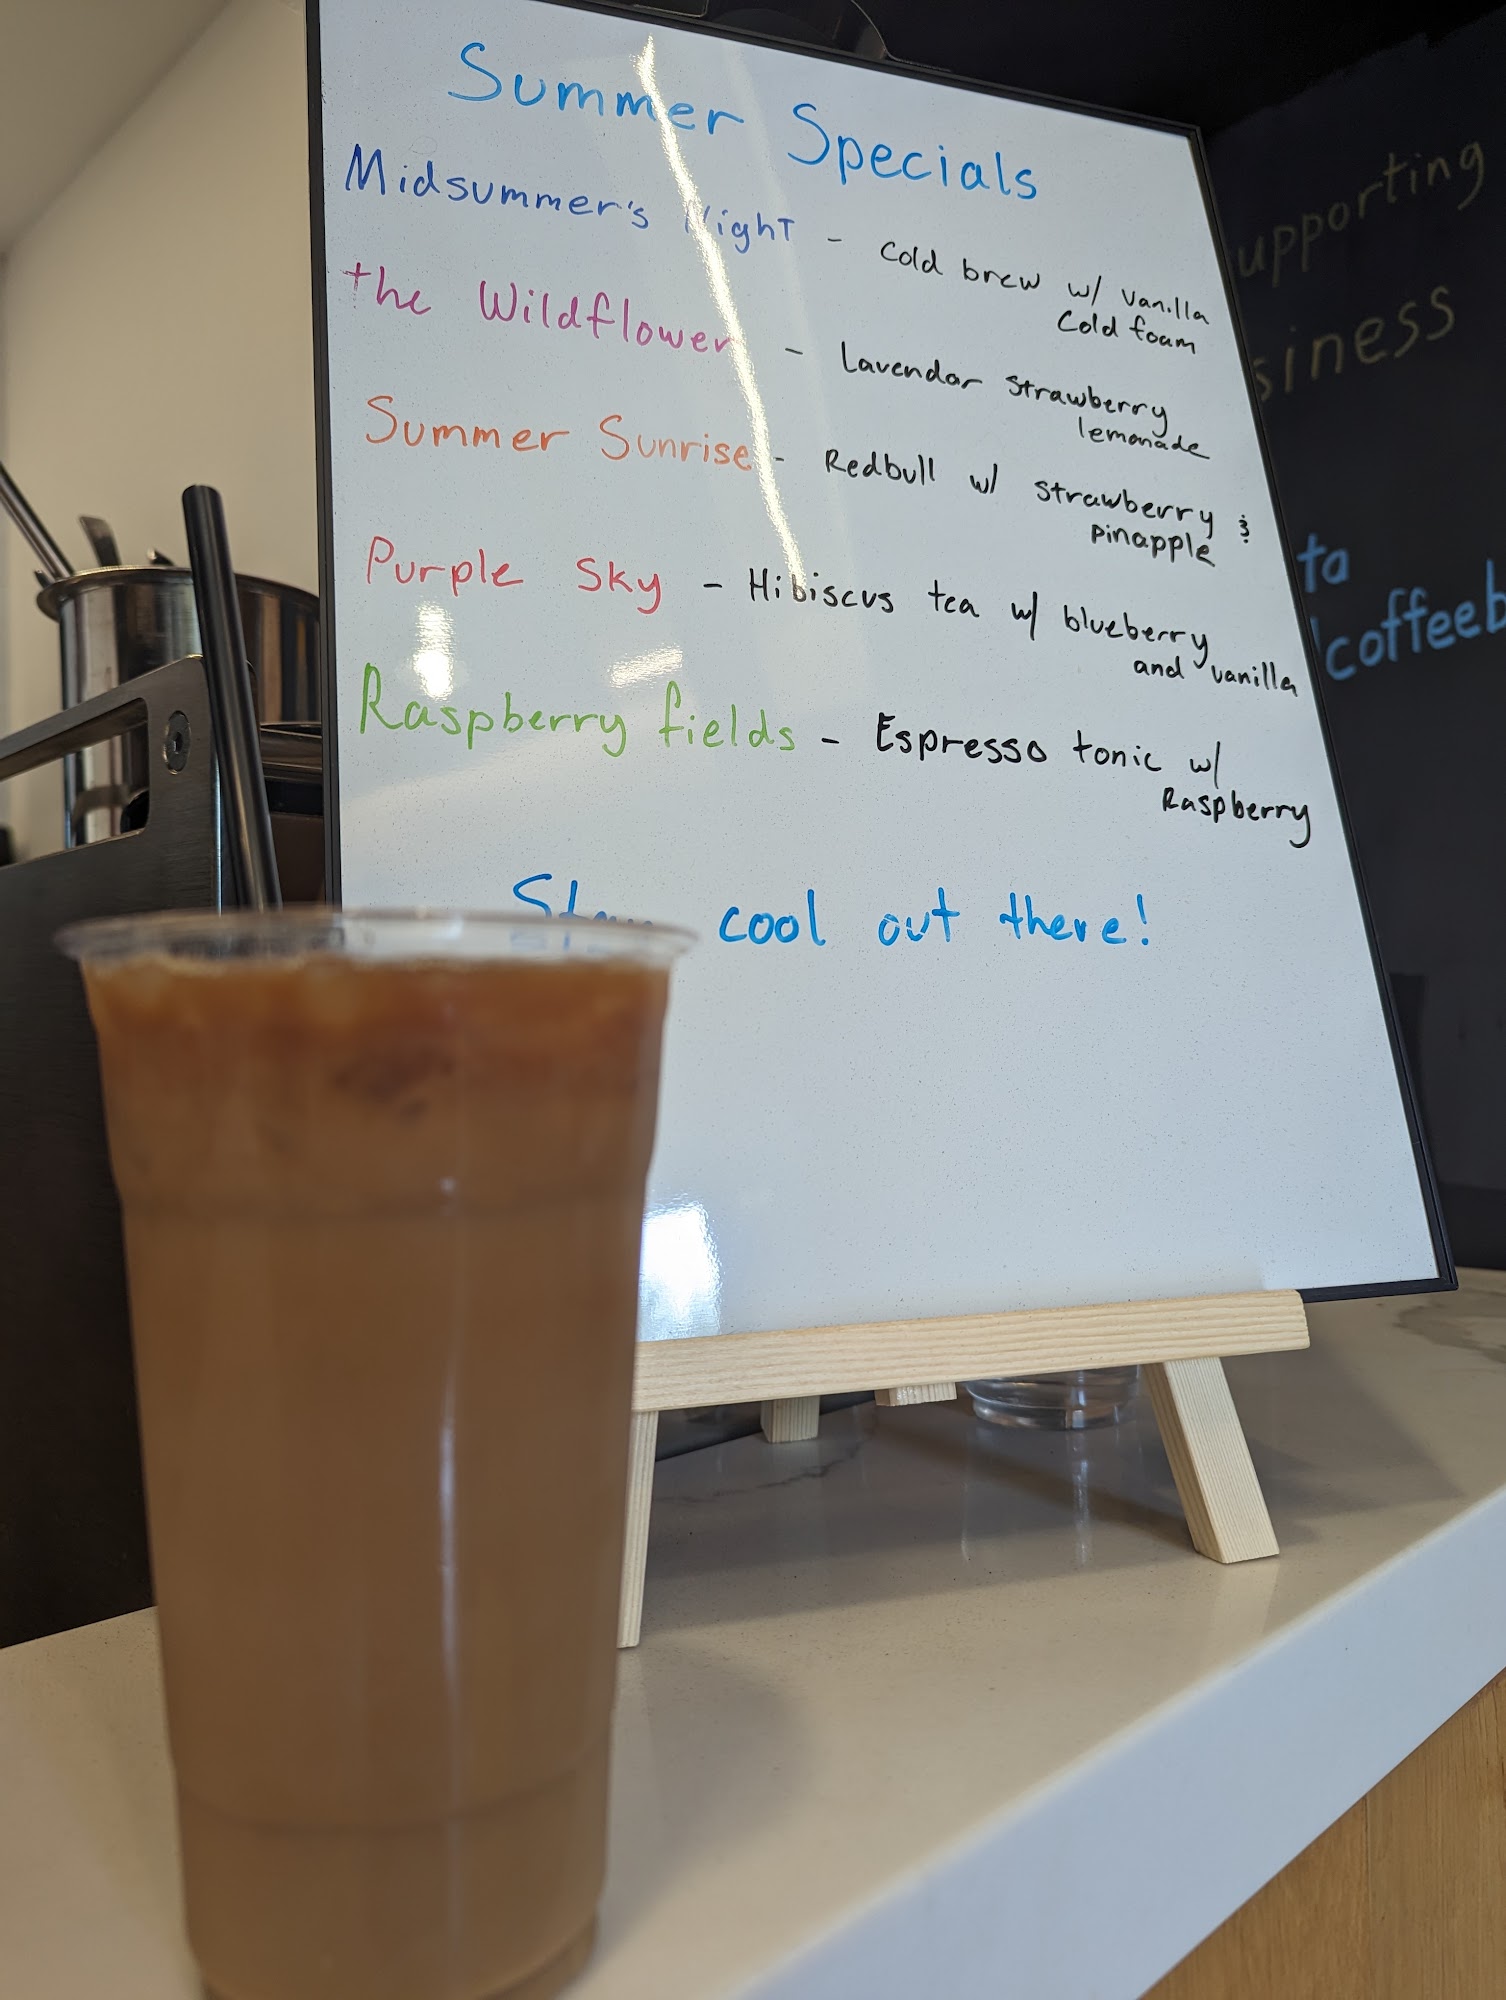 Summer Specials
Midsummer's Night - Cold brew w/ vanilla
Cold foam
the Wildflower - Lavendar Strawberry
lemonade
Summer Sunrise - Redbull w/ strawberry &
pinapple
Purple Sky - Hibiscus tea w/ blueberry
and vanilla
Raspberry fields - Espresso tonic w/
Raspberry
Stay cool out there!
upporting
siness
to
coffeeb